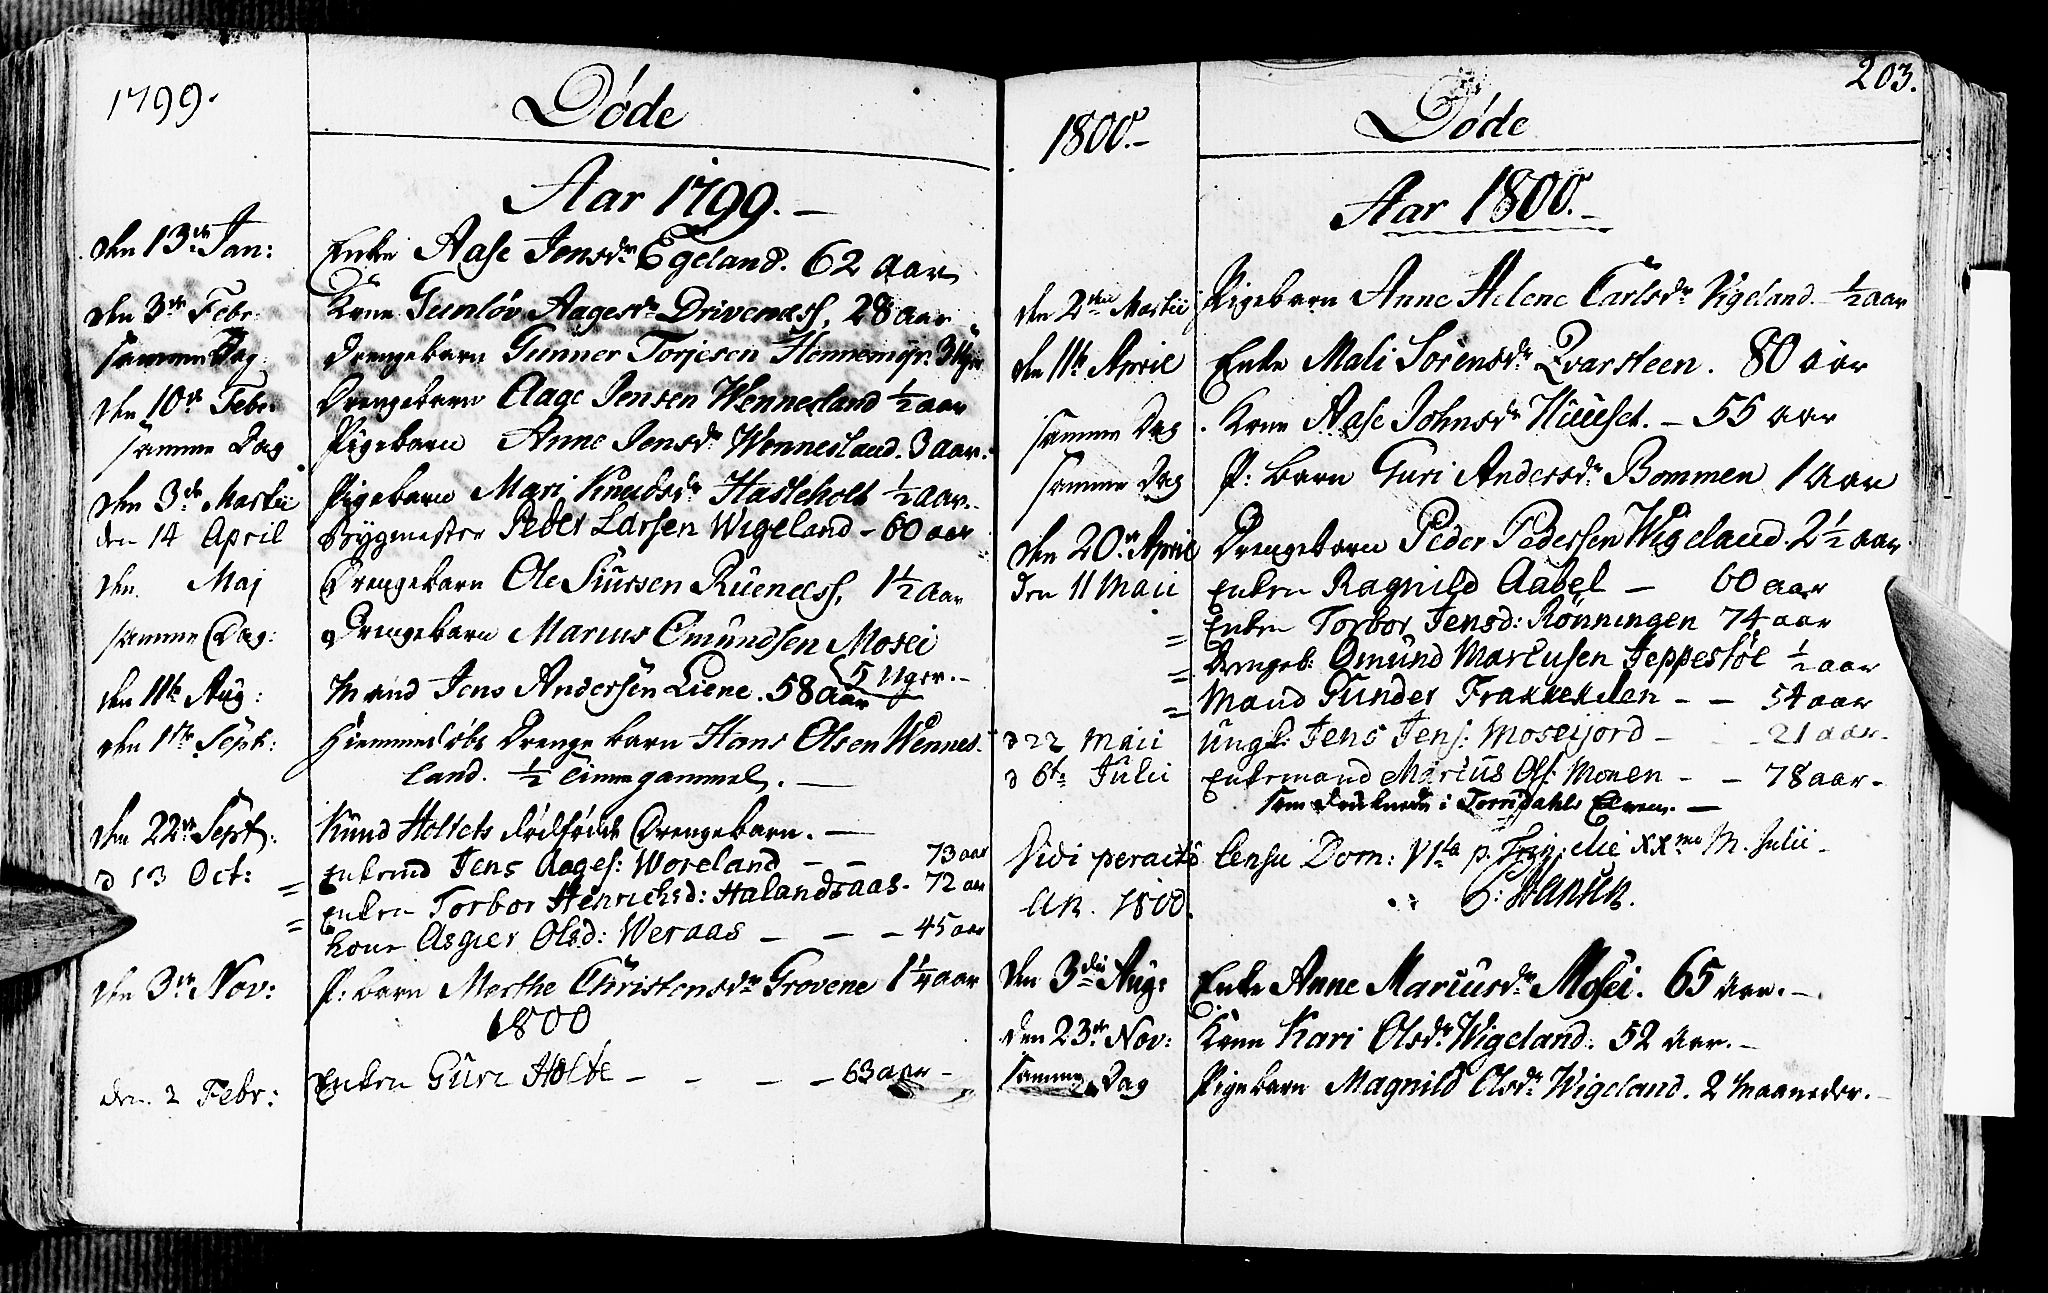 1799.
Døde
Aar 1799. –
den 13de Jan: Enke Aase Jensdr Egeland. 62 aar
den 3de Febr. Kone Gunløv Aagesdr Drivenæss, 28 aar
samme Dag Drengebarn Gunner Torjesen Hennemyr. 3 Uger
den 10de Febr. Drengebarn Aage Jensen Wennesland ½ aar
samme Dag Pigebarn Anne Jensdr Wennesland. 3 aar.
den 3de Martii Pigebarn Mari Knudsdr Hasteholt ½ aar.
den 14 April Bygmester Peder Larsen Wigeland – 60 aar
den Maj Drengebarn Ole Siursen Ruenæss, 1½ aar
samme Dag: Drengebarn Marius Omundsen Mosei
5 Uger. –
den 11te Aug: Mand Jens Andersen Liene. 58 aar
den 1ste Sept: Hiemmedøbt Drenge barn Hans Olsen Wennes-
land. ½ Time gammel. –
den 22de Sept: Knud Holtets dødfødt Drengebarn. –
d 13 Oct: Enkemd Jens Aages: Woreland – – 73 aar
= Enken Torbor Henrichsd: Halandsaas – 72 aar
= kone Asgier Olsd: Weraas – – – 45 aar
den 3de Nov: P: barn Marthe Christensdr Grovene 1¼ aar
1800
den 2 Febr: Enken Guri Holte – – – – 63 aar –
203.
1800. –
Døde
Aar 1800. –
den 2den Martii Pigebarn Anne Helene Carlsdr Vigeland – ½ aar
den 11te April Enke Mali Sørensdr Qvarsteen. 80 aar
samme Dag Kone Aase Johnsdr Huuset. – 55 aar
samme Dag P: barn Guri Andersdr Bommen 1 aar
den 20de April Drengebarn Peder Pedersen Wigeland. 2½ aar
den 11 Maii Enken Ragnild Aabel – 60 aar
= Enken Torbor Jensd: Rønningen 74 aar
= Drengeb: Omund Marcusen Jeppestøl ½ aar
= Mand Gunder – – 54 aar
d 22 Maii Ungk: Jens Jens: Moseijord – – 21 aar –
d 6te Julii Enkemand Marius Ols: Monen – – 78 aar –
som druknede i Torridahls Elven. –
Vidi peractâ Censu Dom: VIta p. die XXma M. Julii –
An. 1800.
den 3die Aug: Enke Anne Mariusdr Mosei. 65 aar. –
den 23de Nov: Kone Kari Olsdr Wigeland. 52 aar. –
samme Dag Pigebarn Magnild Olsdr Wigeland. 2 Maaneder. –